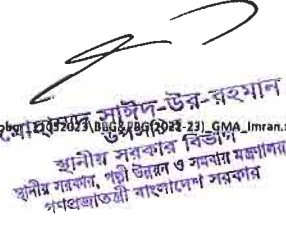 মোহাম্মদ সাঈদ-উর-রহমান
উপসচিব
স্থানীয় সরকার বিভাগ
স্থানীয় সরকার, পল্লী উন্নয়ন ও সমবায় মন্ত্রণালয়
গণপ্রজাতন্ত্রী বাংলাদেশ সরকার
21052023\BBG&PBG(2022-23)_GMA_Imran.